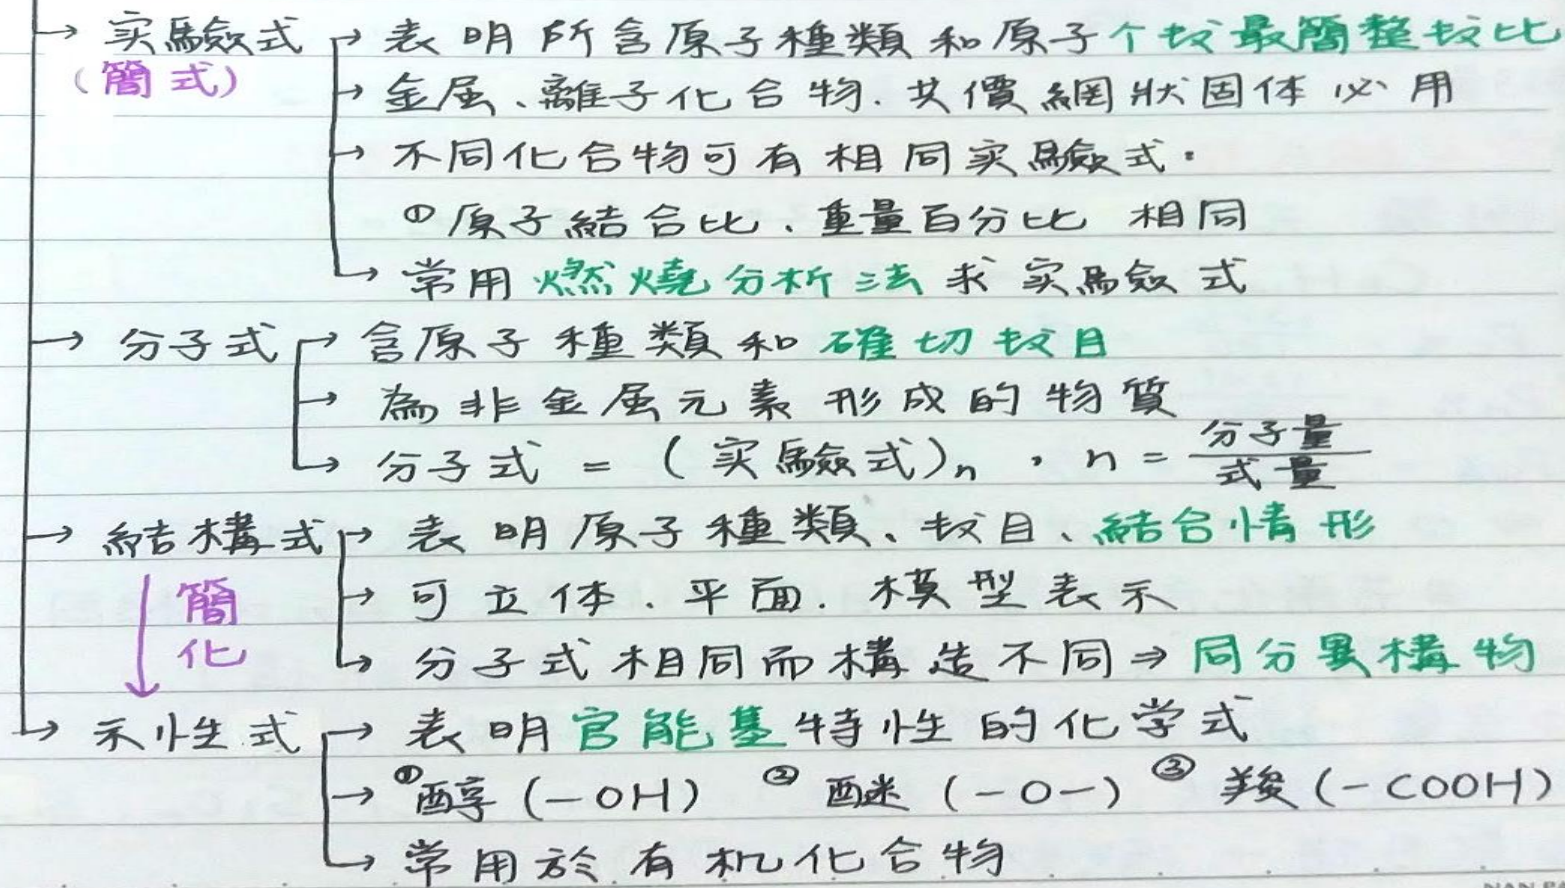 → 实驗式 → 表明所含原子種類和原子个数最簡整数比
(簡式) → 金属、離子化合物、共價網狀固体必用
→ 不同化合物可有相同实驗式。
① 原子結合比、重量百分比 相同
→ 常用燃燒分析法求实驗式
→ 分子式 → 含原子種類和確切数目
→ 為非金属元素形成的物質
→ 分子式 = (实驗式)n , n = 分子量 / 式量
→ 結構式 → 表明原子種類、数目、結合情形
簡化 → 可立体、平面、模型表示
→ 分子式相同而構造不同 ⇒ 同分異構物
→ 示性式 → 表明官能基特性的化学式
→ ①醇 (-OH) ②醚 (-O-) ③羧 (-COOH)
→ 常用於有机化合物